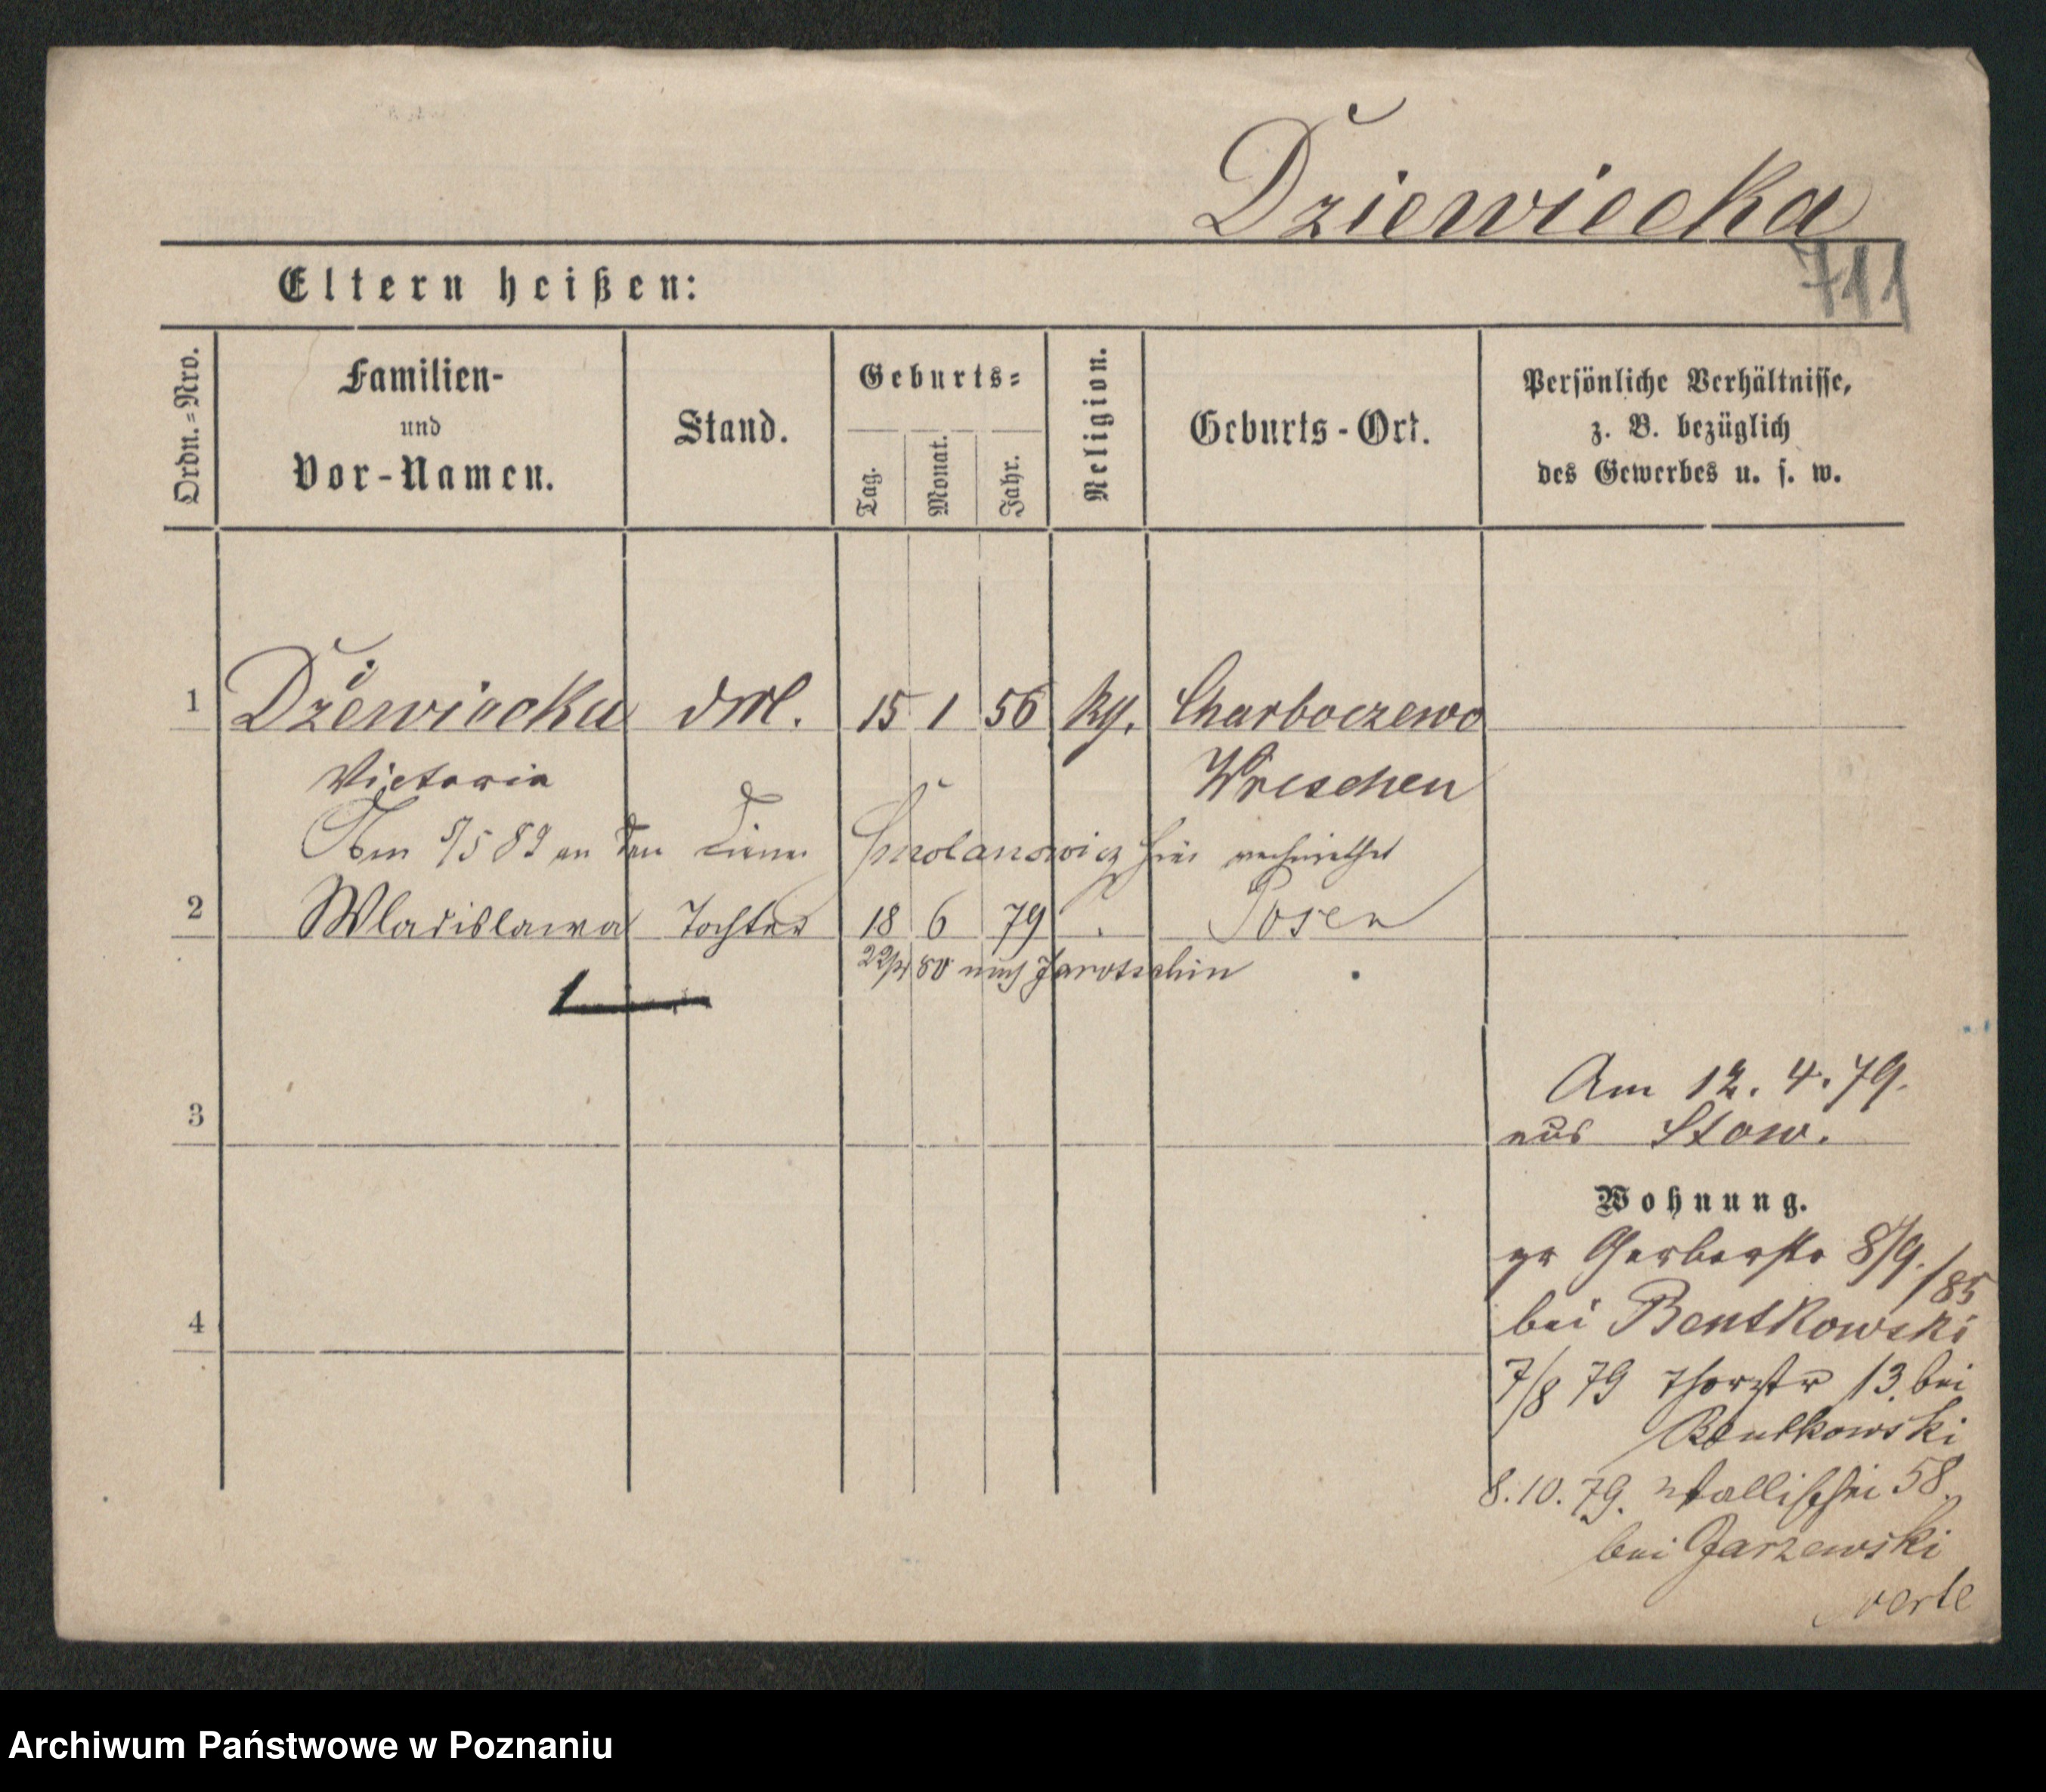 Dziewiecka
711
Eltern heißen:
Ordn.=Nro.
Familien-
und
Vor-Namen.
Stand.
Geburts=
Tag.
Monat.
Jahr.
Religion.
Geburts-Ort.
Persönliche Verhältnisse,
z. B. bezüglich
des Gewerbes u. s. w.
1 Dziewiecka 15 1 56 Charboczewo
Victoria Wreschen
5 82 an den Diener Smolanowicz hier verheirathet
2 Wladislawa Tochter 18 6 79 Posen
80 nach Jarotschin
3
Am 12. 4. 79.
aus Stow.
Wohnung.
gr Gerberstr 8/9. /85
bei Bentkowski
4
7/8 79 Thorstr 13 bei
Bentkowski
8.10.79. Wallischei 58.
bei Jarzewski
verte
Archiwum Państwowe w Poznaniu